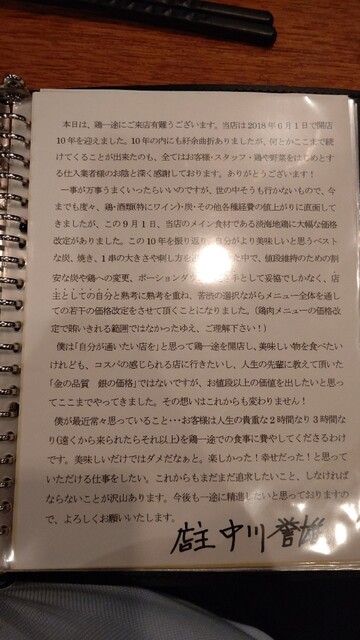 本日は、鶏一途にご来店有難うございます。当店は2018年6月1日で開店
10年を迎えました。10年の内にも紆余曲折ありましたが、何とかここまで続
けてくることが出来たのも、全てはお客様・スタッフ・鶏や野菜をはじめとする
仕入業者様のお陰と深く感謝しております。ありがとうございます!
一事が万事うまくいったらいいのですが、世の中そうも行かないもので、今
までも度々、鶏・酒類(特にワイン)・炭・その他各種経費の値上がりに直面し
てきましたが、この9月1日、当店のメイン食材である淡海地鶏に大幅な価格
改定がありました。この10年を振り返り、自分がより美味しいと思うベスト
な炭、焼き、1串の大きさや刺し方を
中で、値段維持のための割
安な炭や鶏への変更、ポーションダ
として妥協でしかなく、店
主としての自分と熟考に熟考を重ね、苦渋の選択ながらメニュー全体を通し
ての若干の価格改定をさせて頂くことになりました。(鶏肉メニューの価格改
定で賄いきれる範囲ではなかったゆえ、ご理解下さい!)
僕は「自分が通いたい店を」と思って鶏一途を開店し、美味しい物を食べたい
けれども、コスパの感じられる店に行きたいし、人生の先輩に教えて頂いた
「金の品質 銀の価格」ではないですが、お値段以上の価値を出したいと思っ
てここまでやってきました。その想いはこれからも変わりません!
僕が最近常々思っていること・・・お客様は人生の貴重な2時間なり3時間な
り(遠くから来られたらそれ以上)を鶏一途での食事に費やしてくださるわけ
です。美味しいだけではダメだなぁと。楽しかった!幸せだった!と思って
いただける仕事をしたい。これからもまだまだ追求したいこと、しなければ
ならないことが沢山あります。今後も一途に精進したいと思っておりますの
で、よろしくお願いいたします。
店主 中川 誉雄